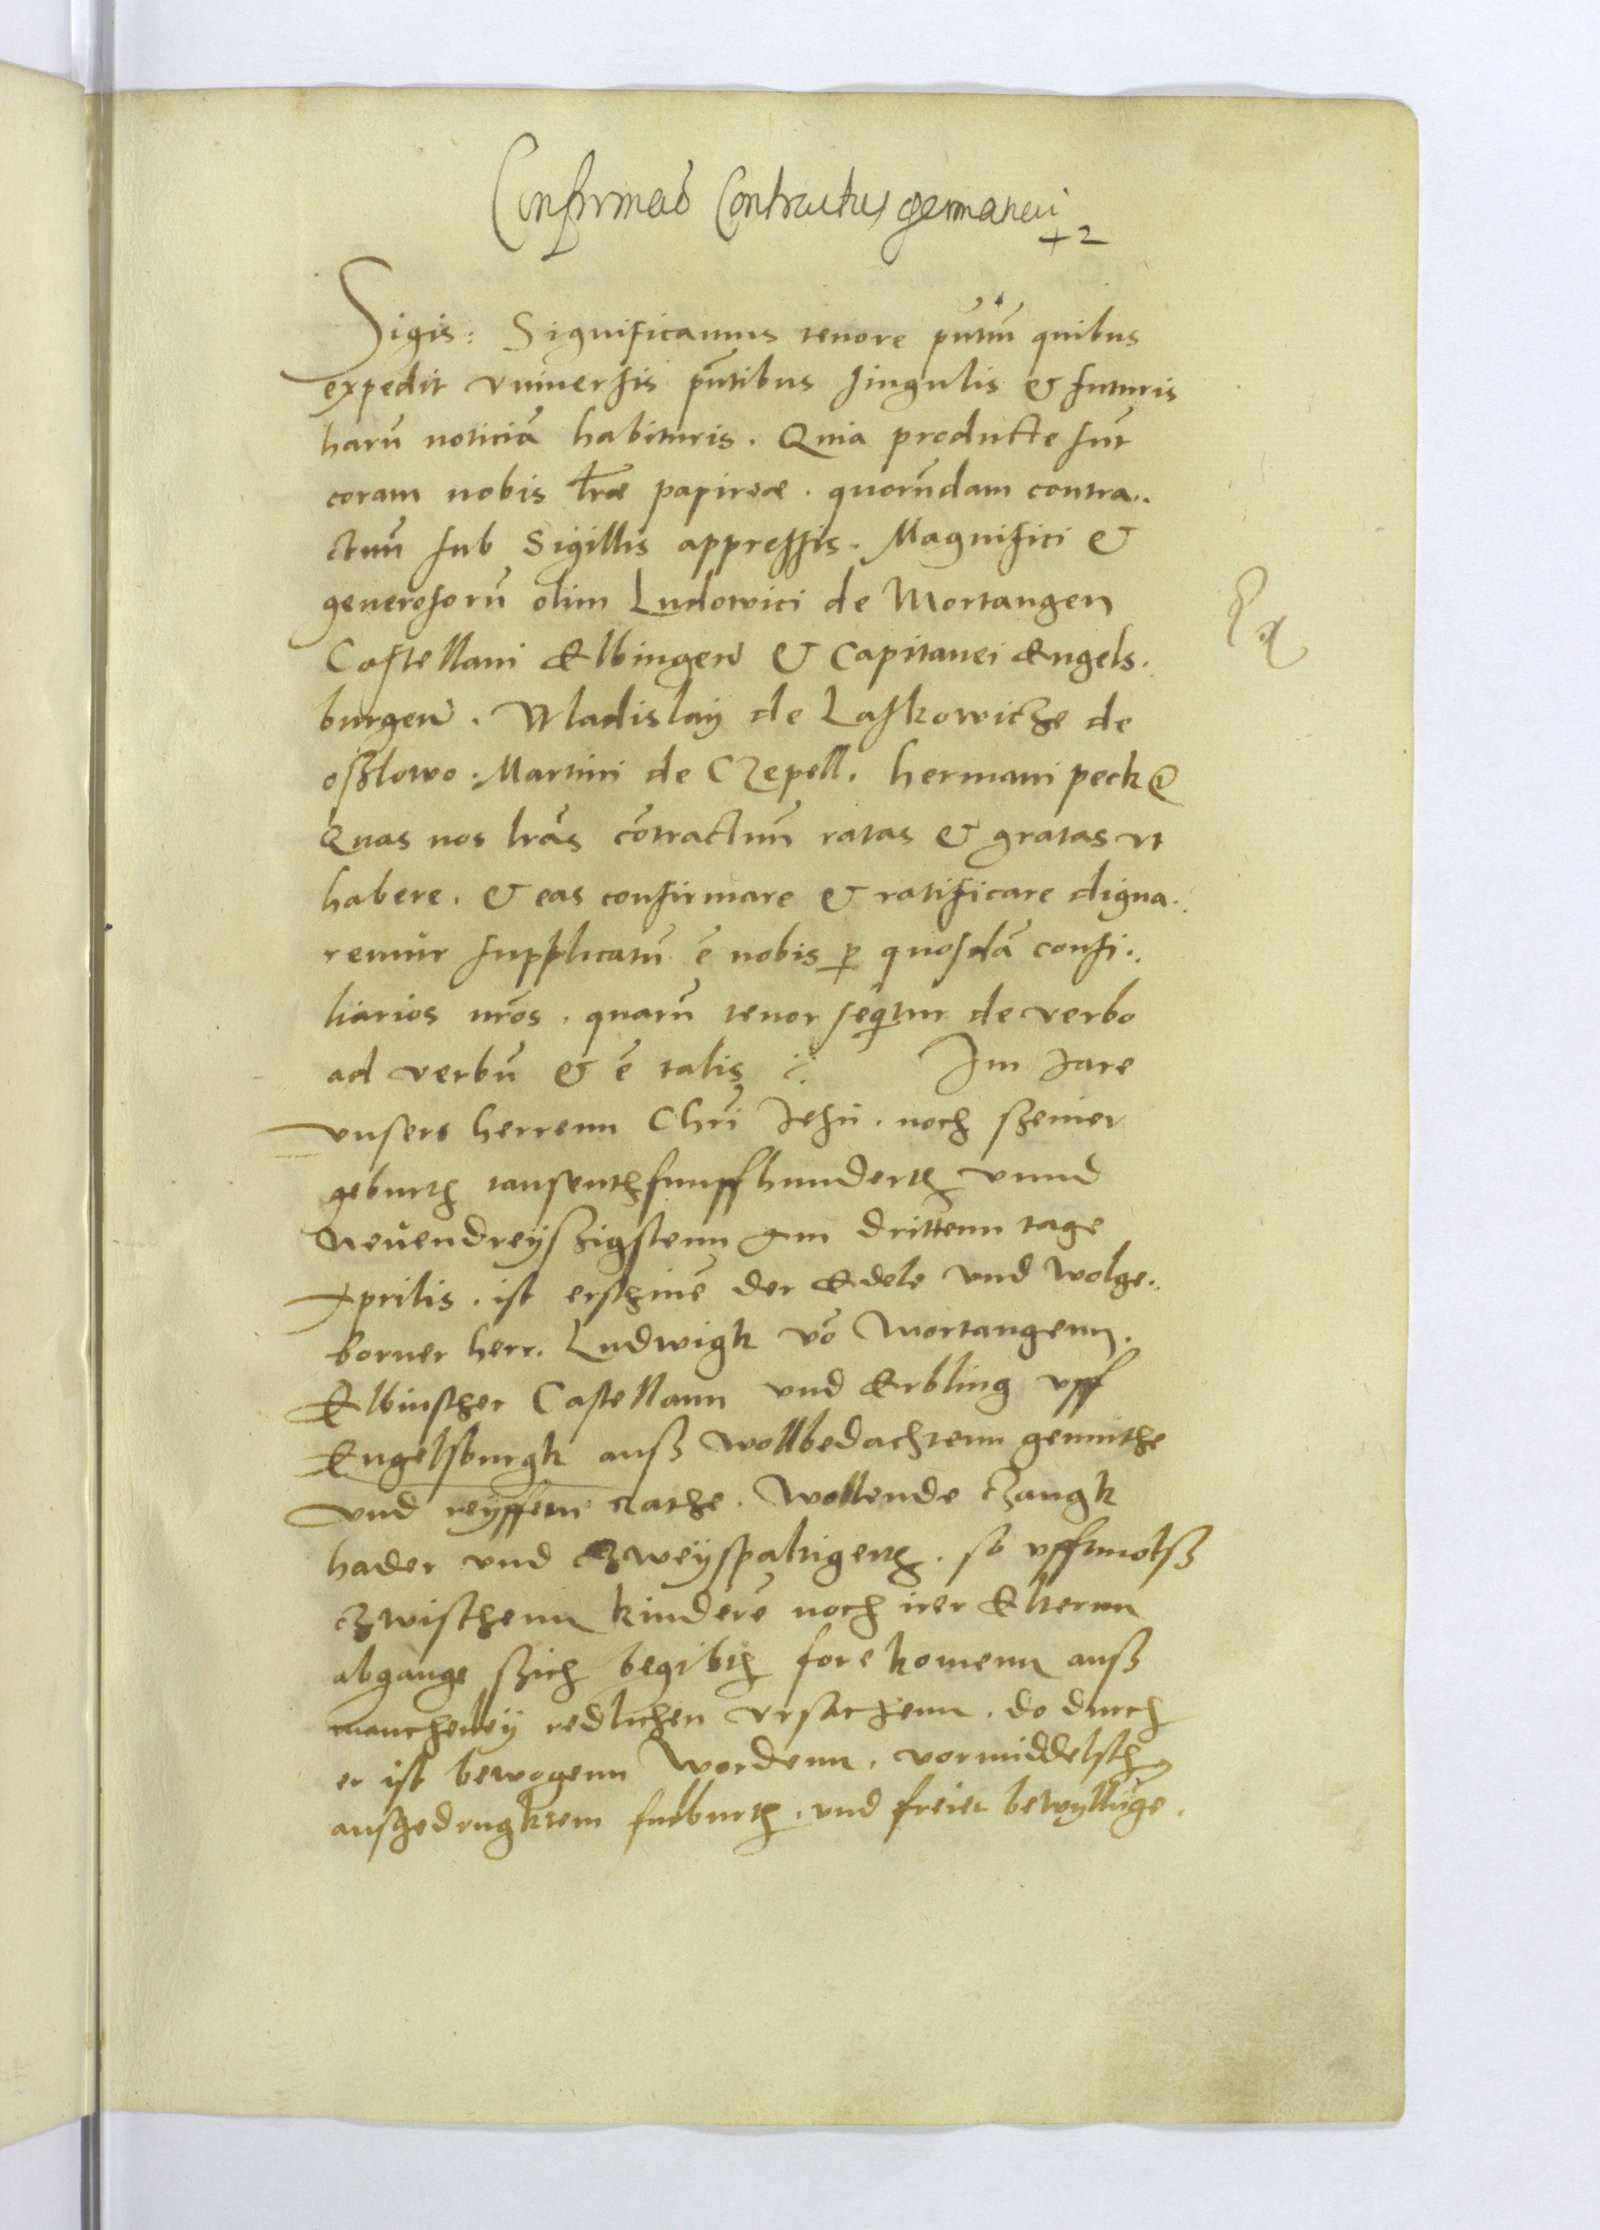 Confirmaō Contractus germanici
Sigis: Significamus tenore pn̄tiū quibus
expedit vniuersis pn̄tibus singulis & futuris
harū noticiā habituris. Quia producte sūt
coram nobis lr̄æ papireæ. quorūdam contra..
ctuū sub Sigillis appressis. Magnifici &
generosorū olim Ludowici de Mortangen
Castellani Elbingeñ & Capitanei Engels.
burgeñ. Wladislay de Laskowicze de
oßlowo. Martini de CZepell. hermani peck
Quas nos lr̄as cōtractuū ratas & gratas vt
habere. & eas confirmare & ratificare digna..
remur supplicatū ē nobis p quosdā consi..
liarios nr̄os. quarū tenor seqtur de verbo
ad verbū & ē talis Im Jare
vnsers herrenn Chrī Jesu. noch szeiner
geburth tausenthfunffhunderth vnnd
Neuendreyszigstenn Am drittenn tage
Aprilis. ist erschinē der Edele vnd Wolge..
borner herr. Ludwigk vō Mortangenn.
Elbinscher Castellann vnd Erbling vff
Engelsburgk ausz wollbedachtenn gemuthe
vnd reyffenn Rathe. Wollende Czangk
hader vnd Czweyspaltigeth. so vfftmolsz
Czwischenn kinderē noch irer Elternn
abgange szich begibth fore komenn ausz
mancherley redlichen vrsachenn. do durch
er ist bewogenn Wordenn. vormiddelsth
auszgedrugktem fulburth. vnd freier bewyllūge.